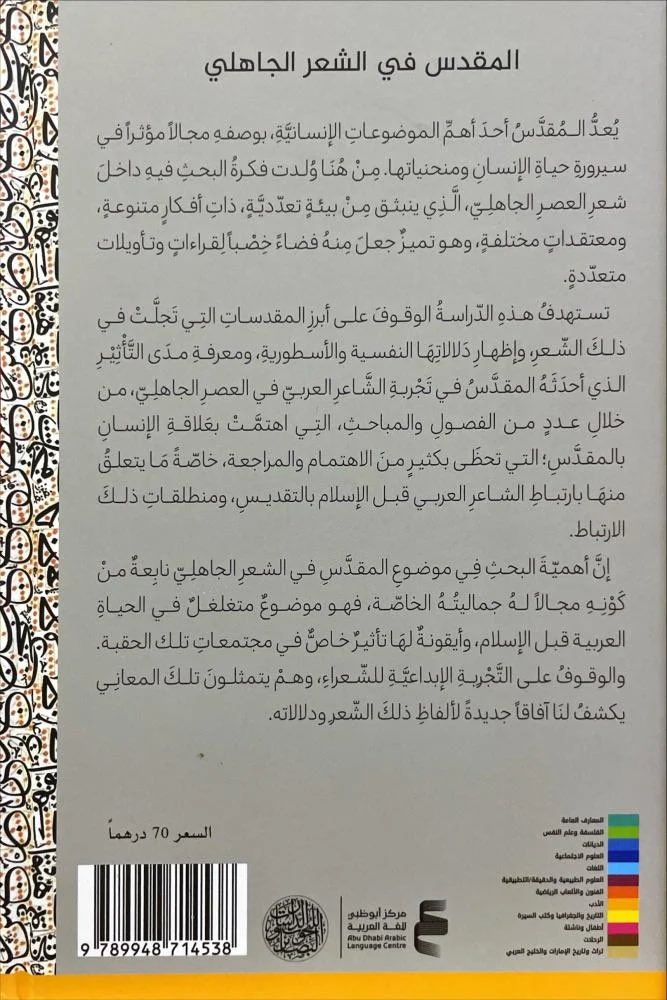 المقدس في الشعر الجاهلي
يُعدُّ المُقدَّسُ أحدَ أهمِّ الموضوعاتِ الإنسانيَّةِ، بوصفهِ مجالاً مؤثراً في
سيرورةِ حياةِ الإنسانِ ومنحنياتها. مِنْ هُنَا وُلدت فكرةُ البحثِ فيهِ داخلَ
شعرِ العصرِ الجاهليّ، الَّذي ينبثق مِنْ بيئةٍ تعدّديَّةٍ، ذاتِ أفكارٍ متنوعةٍ،
ومعتقداتٍ مختلفةٍ، وهو تميزٌ جعلَ مِنهُ فضاءً خِصْباً لِقراءاتٍ وتأويلات
متعدّدةٍ.
تستهدفُ هذهِ الدّراسةُ الوقوفَ على أبرزِ المقدساتِ التي تَجلَّتْ في
ذلكَ الشّعرِ، وإظهارِ دَلالاتِهَا النفسية والأسطوريةِ، ومعرفةِ مدَى التَّأْثِيْرِ
الذي أحدَثَهُ المقدَّسُ في تَجْربةِ الشَّاعرِ العربيّ في العصرِ الجاهليّ، من
خلالِ عددٍ من الفصولِ والمباحثِ، التِي اهتمَّتْ بعَلاقةِ الإنسانِ
بالمقدَّسِ؛ التي تحظَى بكثيرٍ منَ الاهتمام والمراجعة، خاصّةً مَا يتعلقُ
منهَا بارتباطِ الشاعرِ العربي قبل الإسلام بالتقديسِ، ومنطلقاتِ ذلكَ
الارتباط.
إنَّ أهميّةَ البحثِ فِي موضوعِ المقدَّسِ في الشعرِ الجاهليّ نابِعةٌ منْ
كَوْنِهِ مجالاً لهُ جماليتُهُ الخاصّة، فهو موضوعٌ متغلغلٌ في الحياةِ
العربية قبل الإسلام، وأيقونةٌ لهَا تأثيرٌ خاصٌّ في مجتمعاتِ تلك الحقبة.
والوقوفُ على التَّجْربةِ الإبداعيَّةِ للشّعراءِ، وهمْ يتمثلونَ تلكَ المعانِي
يكشفُ لنَا آفاقاً جديدةً لألفاظِ ذلكَ الشّعرِ ودلالاته.
السعر 70 درهماً
المعارف العامة
الفلسفة وعلم النفس
الديانات
العلوم الاجتماعية
اللغات
العلوم الطبيعية والدقيقة/التطبيقية
الفنون والألعاب الرياضية
الأدب
التاريخ والجغرافيا وكتب السيرة
أطفال وناشئة
الرحلات
تراث وتاريخ الإمارات والخليج العربي
مركز أبوظبي
للغة العربية
Abu Dhabi Arabic
Language Centre
9 789948 714538